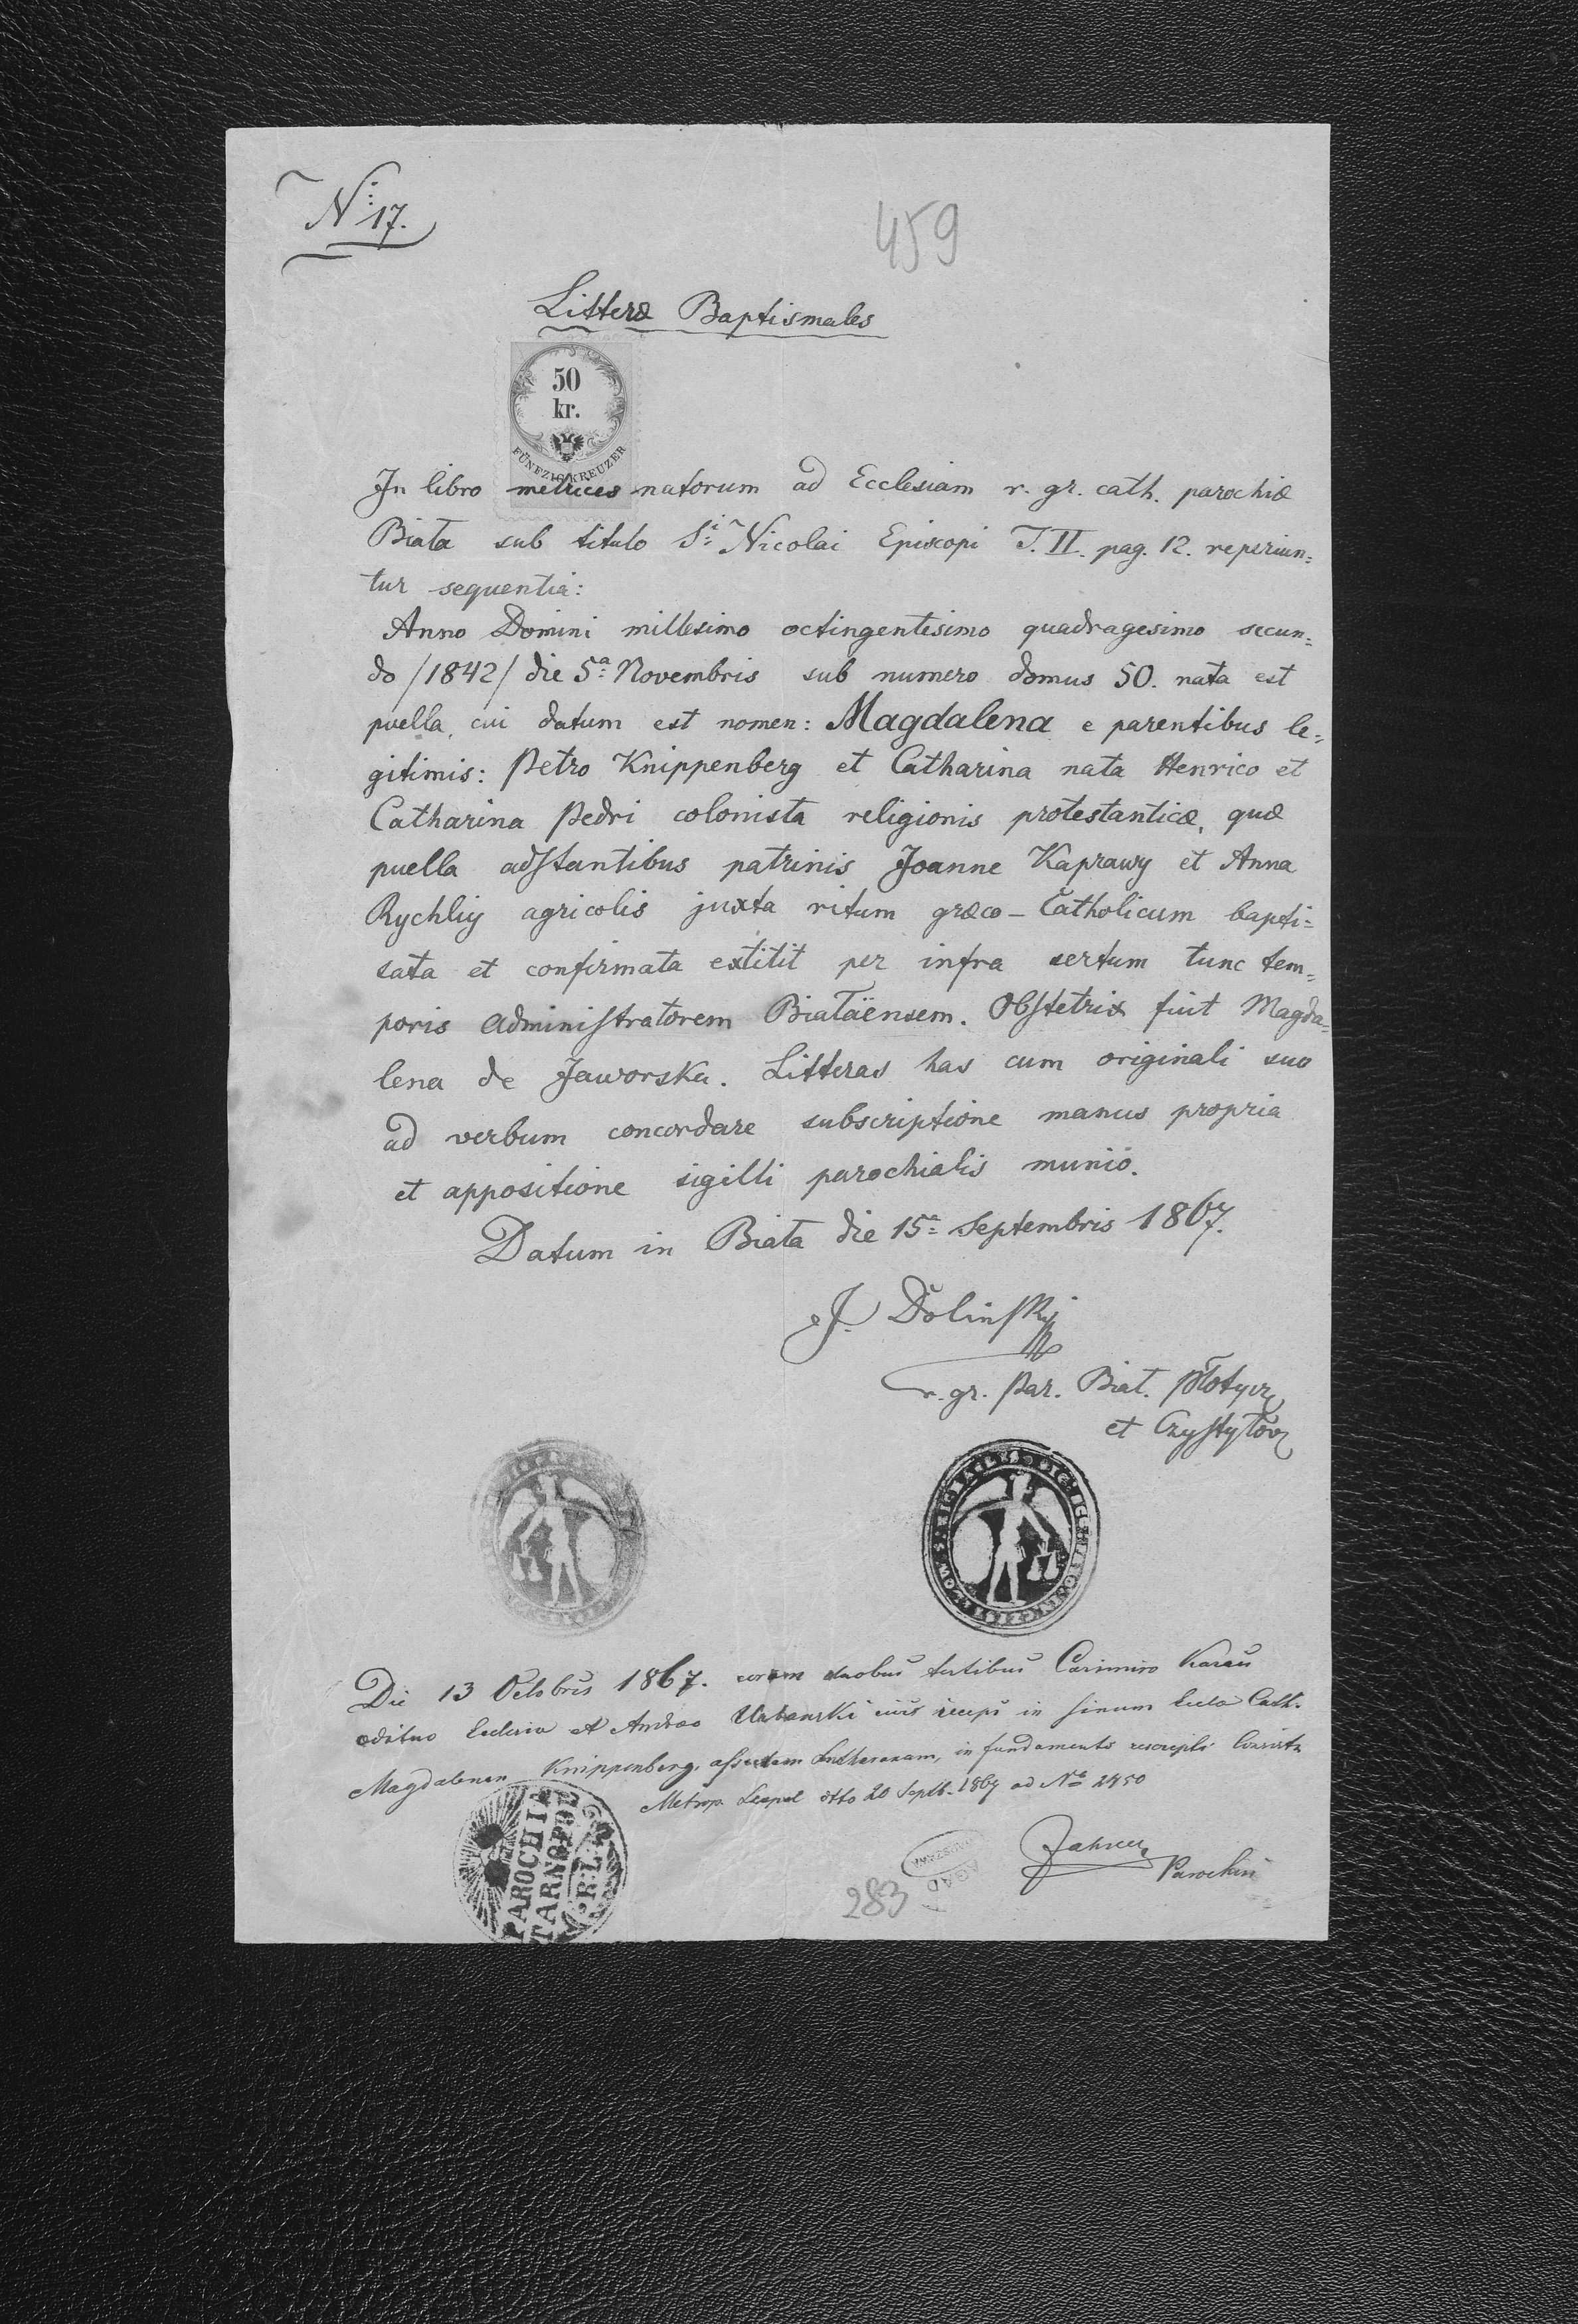 N: 17.
459
Litteræ Baptismales
50
kr.
FÜNFZIG KREUZER
In libro metrices natorum ad Ecclesiam r. gr. cath. parochiæ
Biała sub titulo S:i Nicolai Episcopi T. II. pag. 12. reperiun=
tur sequentia:
Anno Domini millesimo octingentesimo quadragesimo secun=
do /1842/ die 5:a Novembris sub numero domus 50. nata est
puella, cui datum est nomen: Magdalena e parentibus le=
gitimis: Petro Knippenberg et Catharina nata Henrico et
Catharina Pedri colonista religionis protestanticæ, quæ
puella adstantibus patrinis Joanne Kaprawy et Anna
Rychliy agricolis juxta ritum græco-Catholicum bapti=
sata et confirmata extitit per infra sertum tunc tem=
poris administratorem Białaënsem. Obstetrix fuit Magda=
lena de Jaworska. Litteras has cum originali suo
ad verbum concordare subscriptione manus propria
et appositione sigilli parochialis munio.
Datum in Biała die 15:a Septembris 1867.
J. Dolinskij
r. gr. Par. Biał. Płotycz
et Czystyłov
Die 13 Octobris 1867. coram duobus testibus Casimiro
Ecclesiæ et Urbanski in sinum Cath.
Magdalenam Knippenberg, Lutheranam, in fundamento rescripti Consist
Metrop. Leopol dtto 20 Septb. 1867 ad No 2450
Parochus
PAROCHIA
TARNOPOL
R. L.
283
AGAD